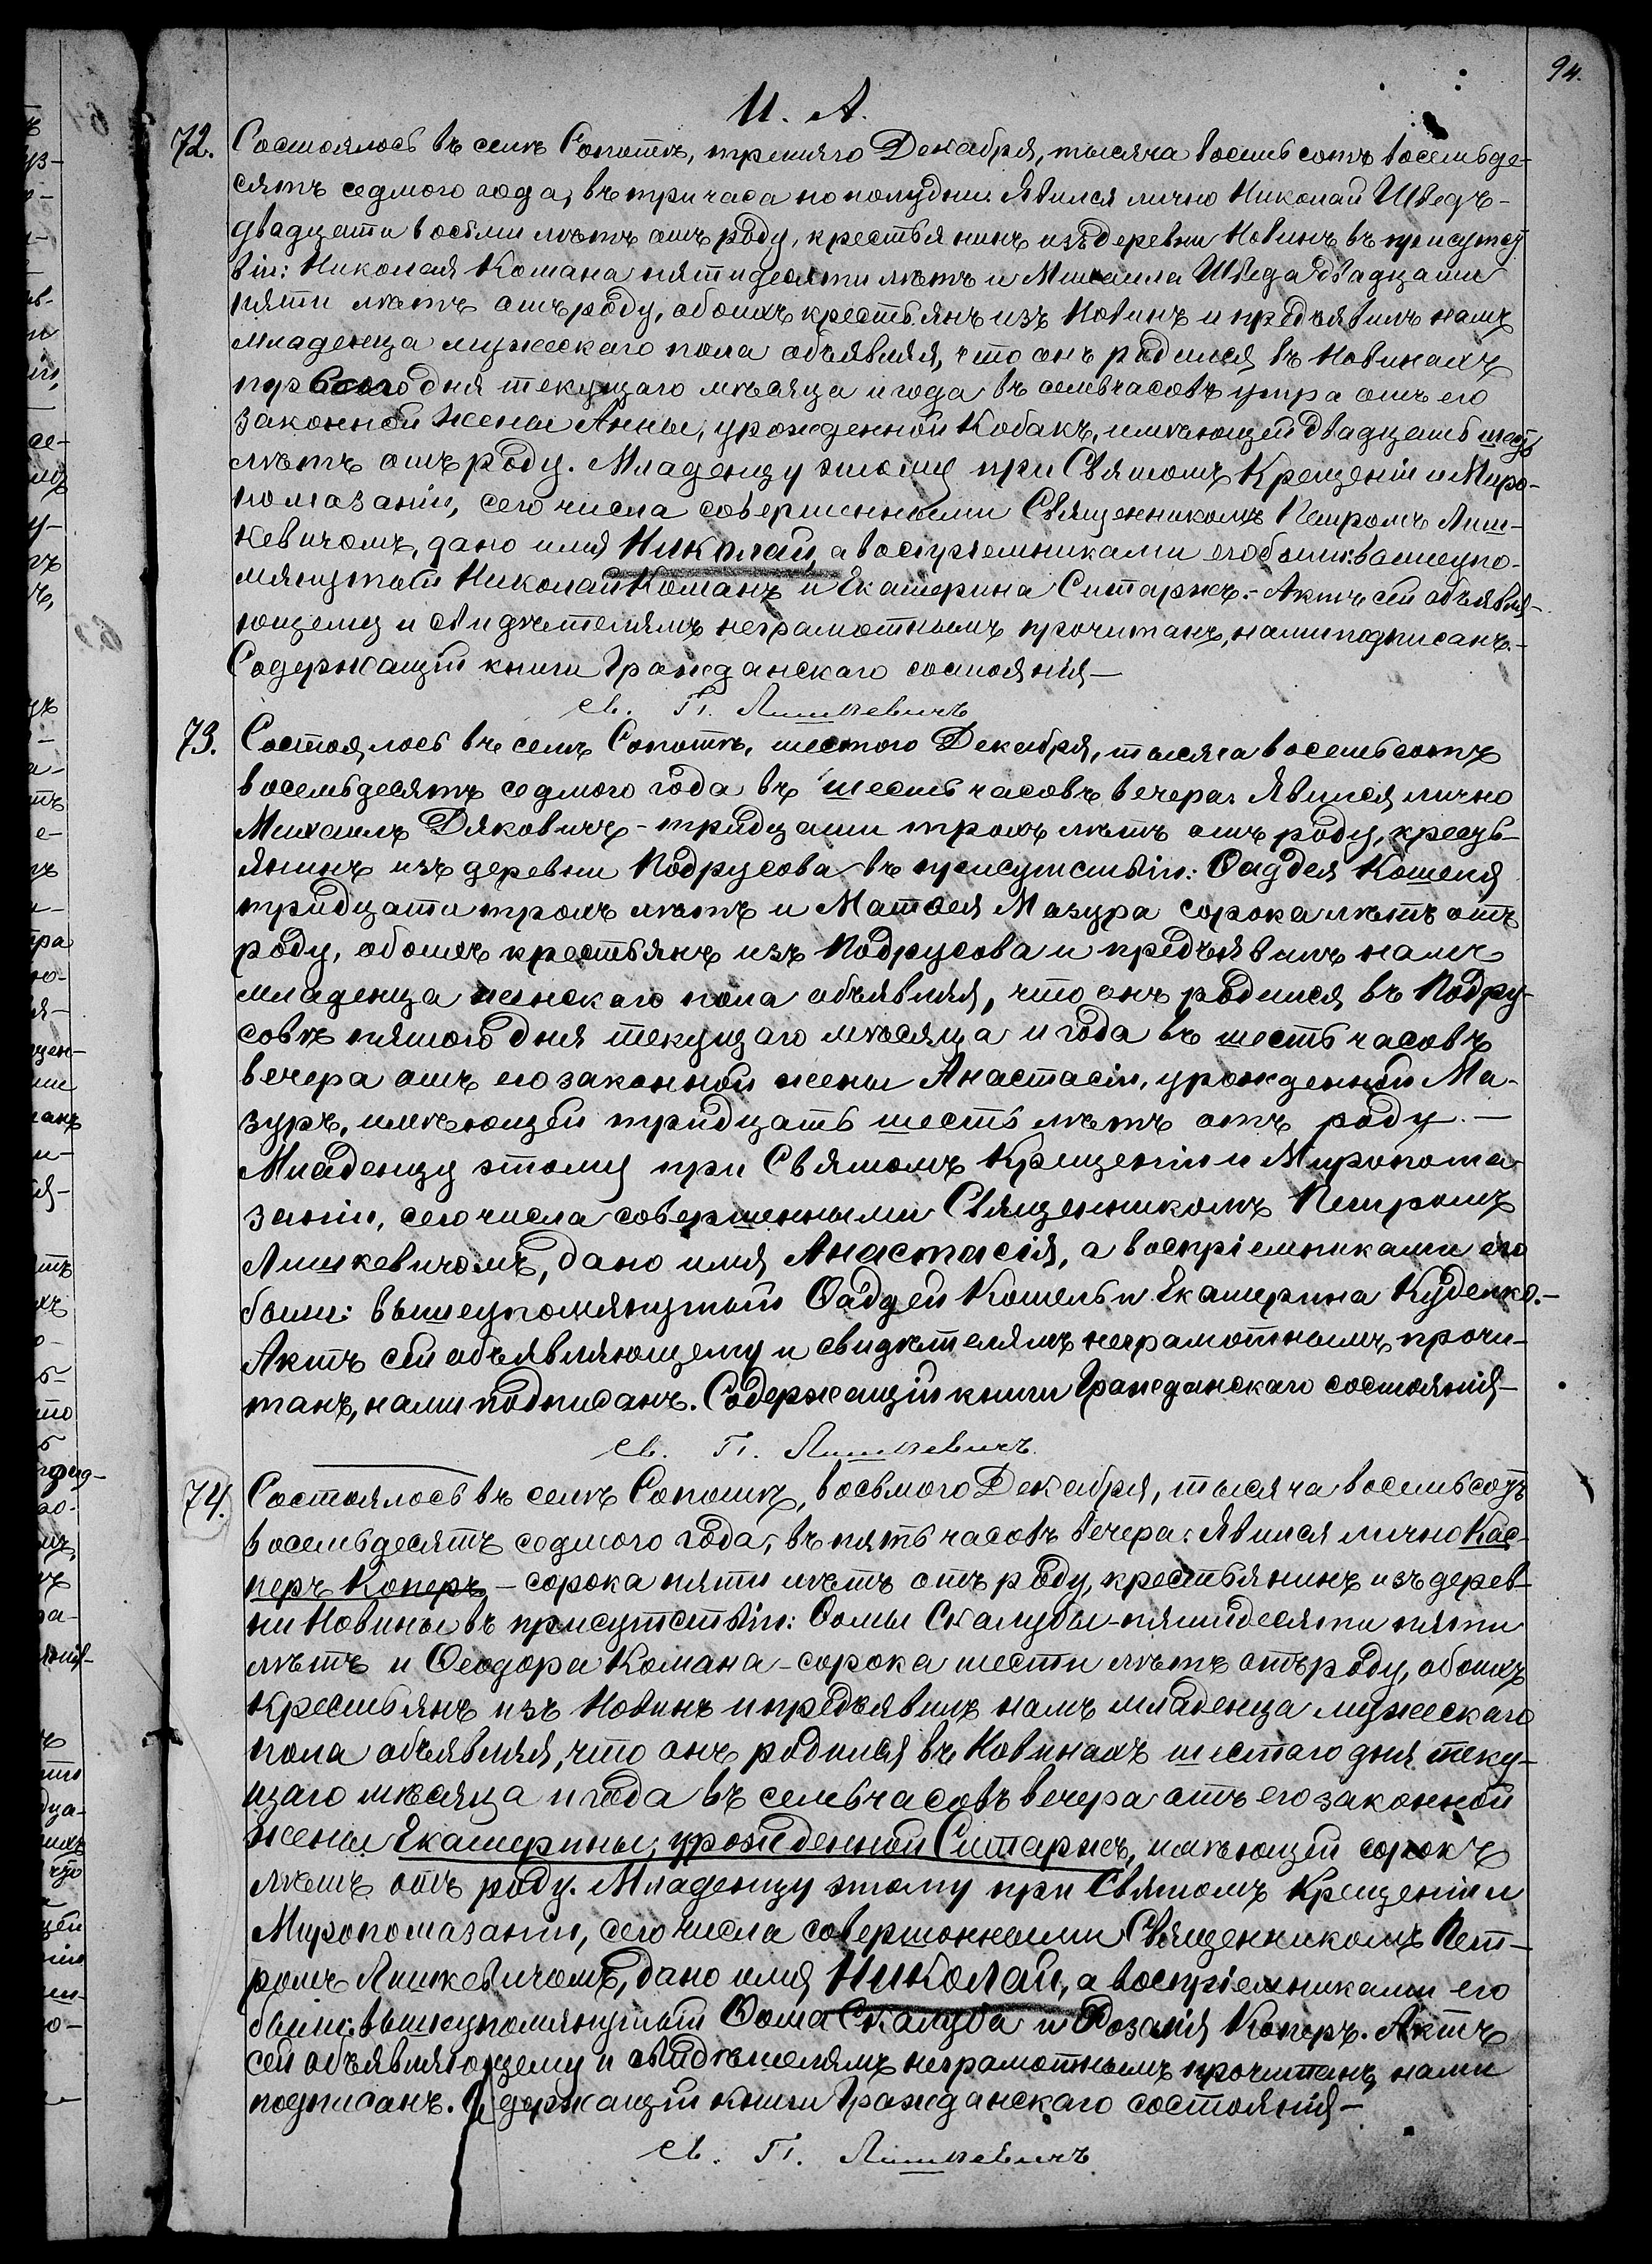 94.
И. А.
72. Состоялось въ селѣ Сопотѣ, третяго Декабря, тысяча восемь сотъ восемьде-
сятъ седмого года, въ три часа по полудни. Явился лично Николай Шведъ-
двадцати восьми лѣтъ отъ роду, крестьянинъ изъ деревни Новинъ въ присутст
віи: Николая Комана пятидесяти лѣтъ и Михаила Шведа двадцати
пяти лѣтъ отъ роду, обоихъ крестьянъ изъ Новинъ и предъявилъ намъ
младенца мужескаго пола объявляя, что онъ родился въ Новинахъ
первого дня текущаго мѣсяца и года въ семь часовъ утра отъ его
законной жены Анны, урожденной Кобакъ, имѣющей двадцать шесть
лѣтъ отъ роду. Младенцу этому при Святомъ Крещеніи и Миро-
помазаніи, сего числа совершенными Священникомъ Петромъ Лиш-
кевичомъ, дано имя Николай, а воспріемниками его были: вышеупо-
мянутый Николай Команъ и Екатерина Ситаржъ.- Актъ сей объявля-
ющему и свидѣтелямъ неграмотнымъ прочитанъ, нами подписанъ.-
Содержащій книги Гражданскаго состоянія—
Св. П. Лишкевичъ
73. Состоялось въ селѣ Сопотѣ, шестого Декабря, тысяча восемьсотъ
восемьдесятъ седмого года въ шесть часовъ вечера. Явился лично
Михаилъ Дяковичъ - тридцати трохъ лѣтъ отъ роду, кресть-
янинъ изъ деревни Подрусова въ присутствіи: Ѳаддея Кошеля
тридцати трохъ лѣтъ и Матѳея Мазура сорока лѣтъ отъ
роду, обоихъ крестьянъ изъ Подрусова и предъявилъ намъ
младенца женскаго пола объявляя, что онъ родился въ Подру-
совѣ пятого дня текущаго мѣсяца и года въ шесть часовъ
вечера отъ его законной жены Анастасіи, урожденной Ма-
зуръ, имѣющей тридцать шесть лѣтъ отъ роду.—
Младенцу этому при Святомъ Крещеніи и Миропома-
заніи, сего числа совершенными Священникомъ Петромъ
Лишкевичомъ, дано имя Анастасія, а воспріемниками его
были: вышеупомянутый Ѳаддей Кошель и Екатерина Куделко.-
Актъ сей объявляющему и свидѣтелямъ неграмотнымъ прочи-
танъ, нами подписанъ. Содержащій книги Гражданскаго состоянія—
Св. П. Лишкевичъ
74. Состоялось въ селѣ Сопотѣ, восьмого Декабря, тысяча восемьсотъ
восемьдесятъ седмого года, въ пять часовъ вечера. Явился лично Кас-
перъ Коперъ - сорока пяти лѣтъ отъ роду, крестьянинъ изъ дерев-
ни Новины въ присутствіи: Ѳомы Скалубы - пятидесяти пяти
лѣтъ и Ѳеодора Комана - сорока шести лѣтъ отъ роду, обоихъ
крестьянъ изъ Новинъ и предъявилъ намъ младенца мужескаго
пола объявляя, что онъ родился въ Новинахъ шестаго дня теку-
щаго мѣсяца и года въ семь часовъ вечера отъ его законной
жены Екатерины, урожденной Ситаржъ, имѣющей сорокъ
лѣтъ отъ роду. Младенцу этому при Святомъ Крещеніи и
Миропомазаніи, сего числа совершонными Священникомъ Пет-
ромъ Лишкевичомъ, дано имя Николай, а воспріемниками его
были: вышеупомянутый Ѳома Скалуба и Розалія Коперъ. Актъ
сей объявляющему и свидѣтелямъ неграмотнымъ прочитанъ, нами
подписанъ. Содержащій книги Гражданскаго состоянія—
Св. П. Лишкевичъ